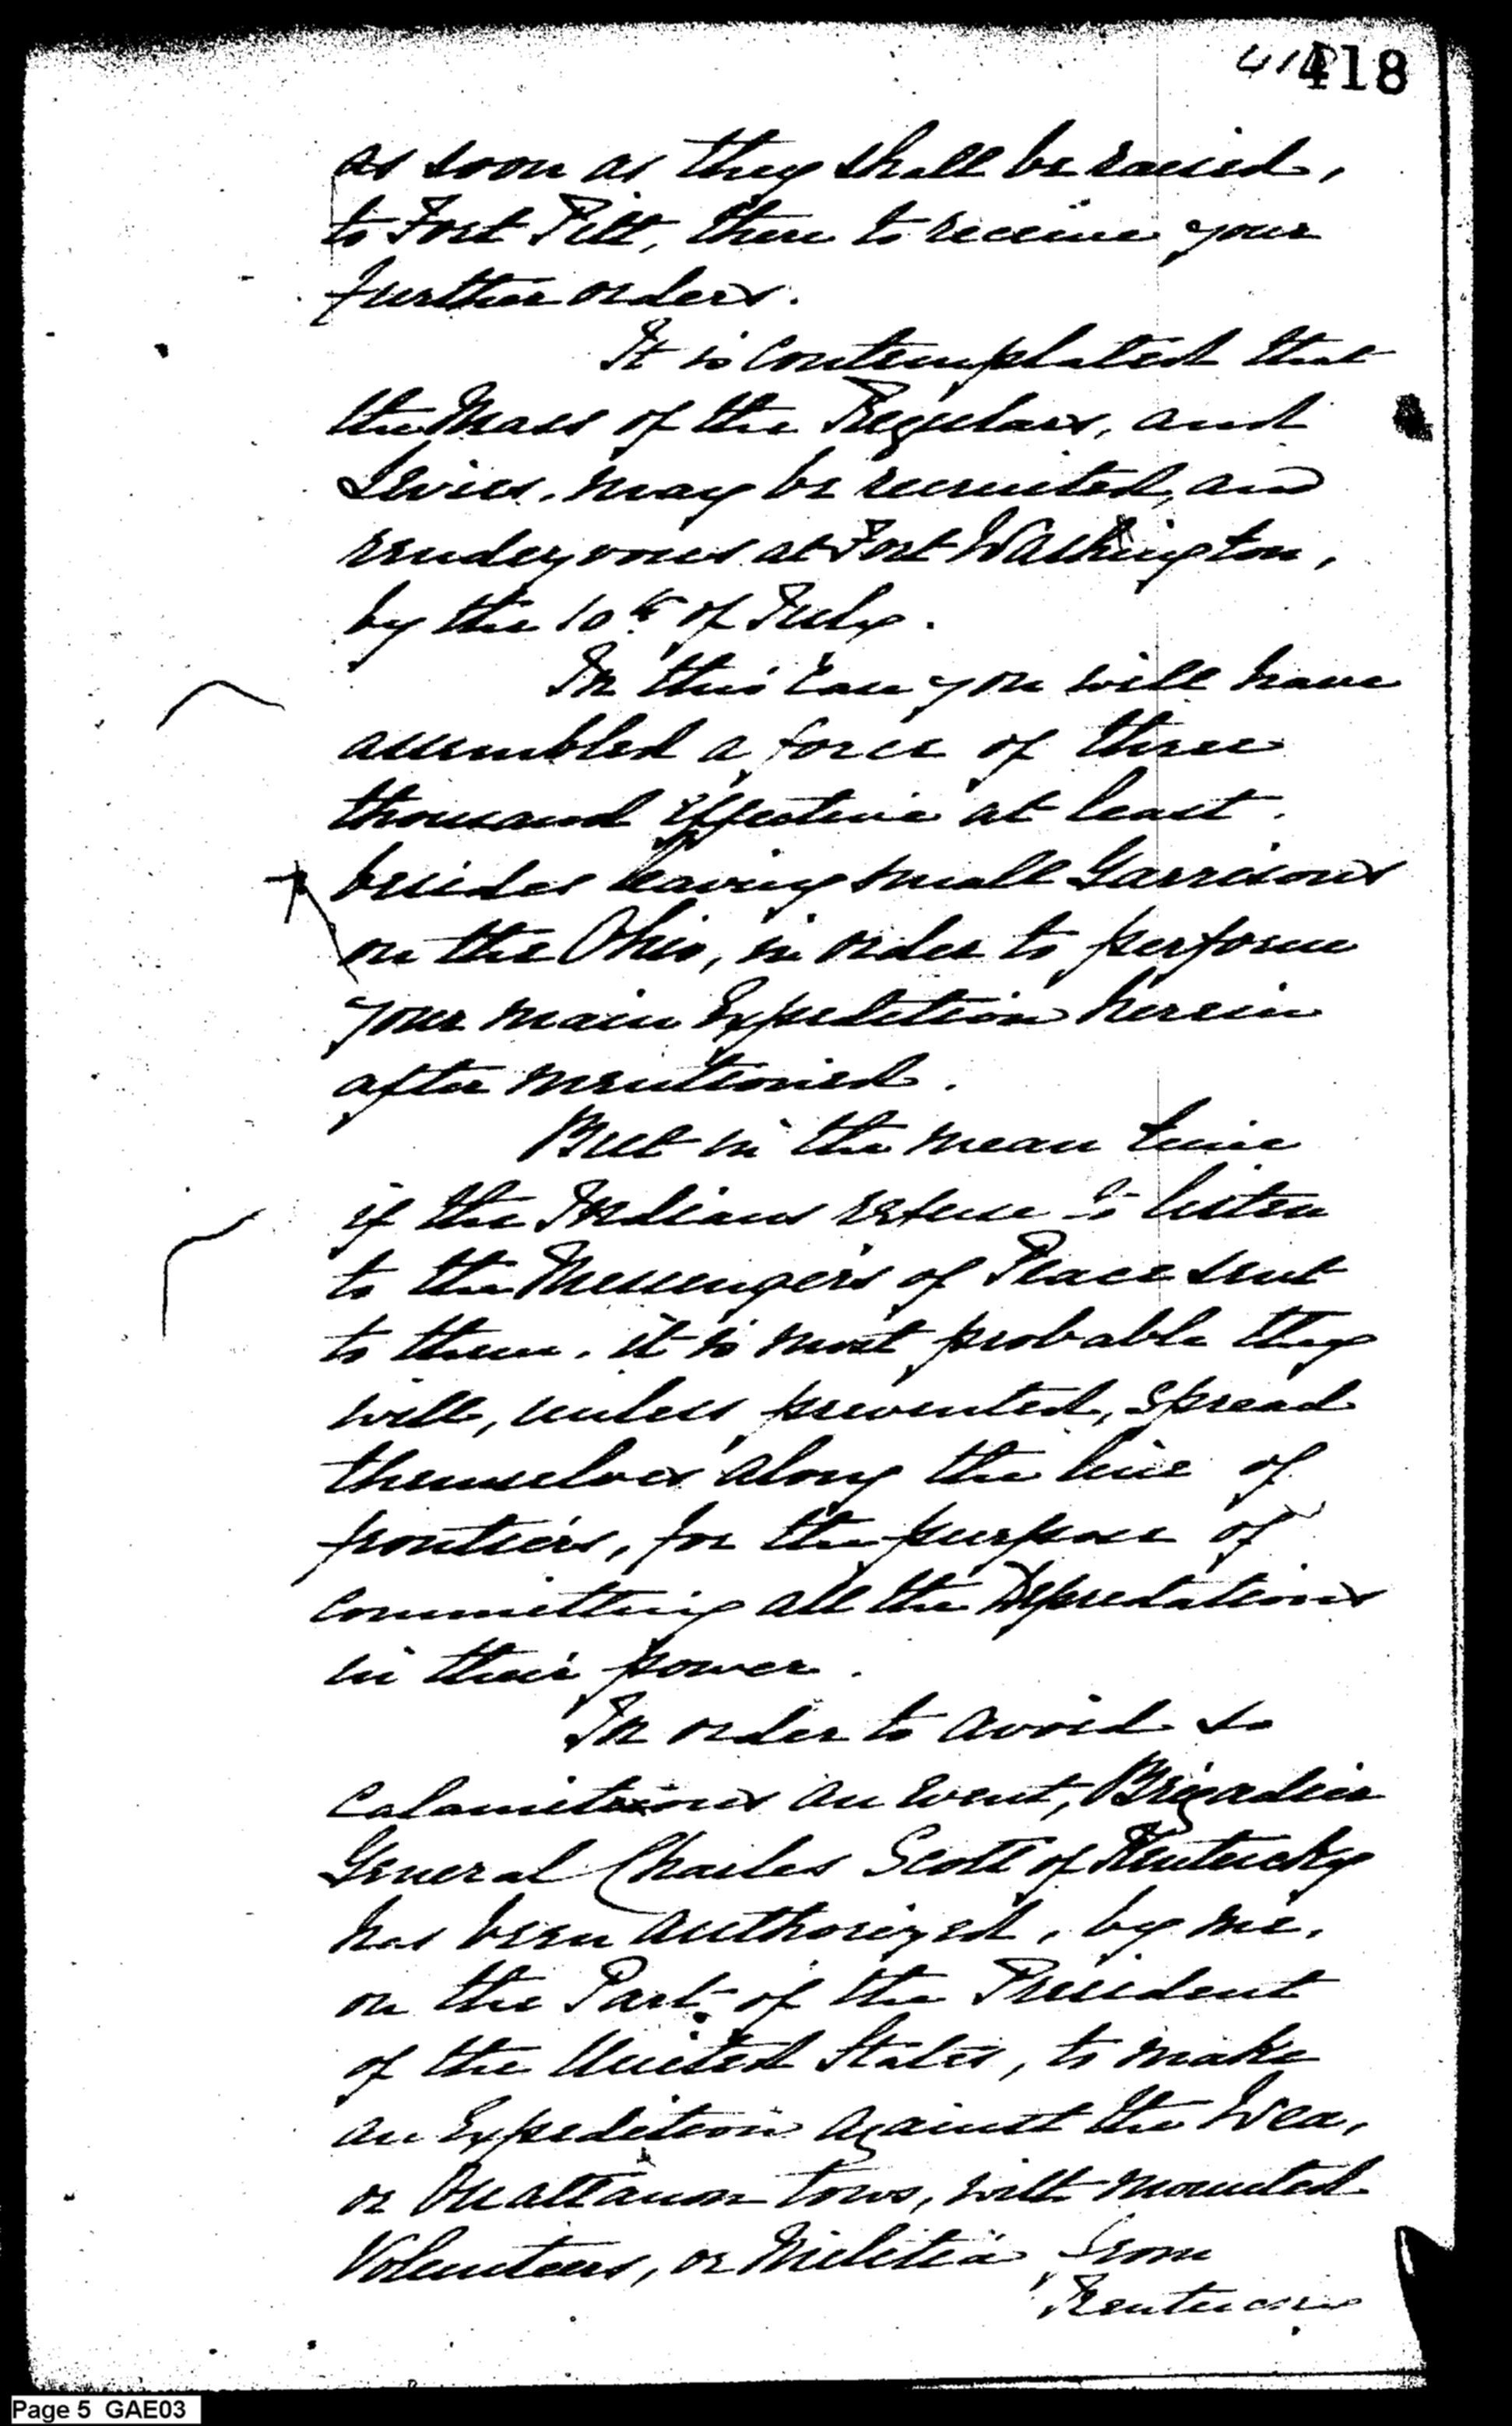 418
as soon as they shall be raised,
to Fort Pitt, there to receive your
further orders.
It is contemplated that
the Mass of the Regulars, and
Levies, may be recruited, and
rendezvous at Fort Washington,
by the 10th of July.
In this case you will have
assembled a force of three
thousand effective at least.
besides leaving small Garrisons
on the Ohio, in order to perform
your main Expedition herein
after mentioned.
But in the mean time
if the Indians refuse to listen
to the Messengers of Peace sent
to them, it is most probable they
will, unless prevented, spread
themselves along the line of
frontiers, for the purpose of
committing all the Depredations
in their power.
In order to avoid so
calamitous an event, Brigadier
General Charles Scott of Kentucky
has been authorized, by me,
on the Part of the President
of the United States, to make
an Expedition against the Wea,
or Ouiattanon towns, with mounted
Volunteers, or Militia from
Kentucky
Page 5 GAE03